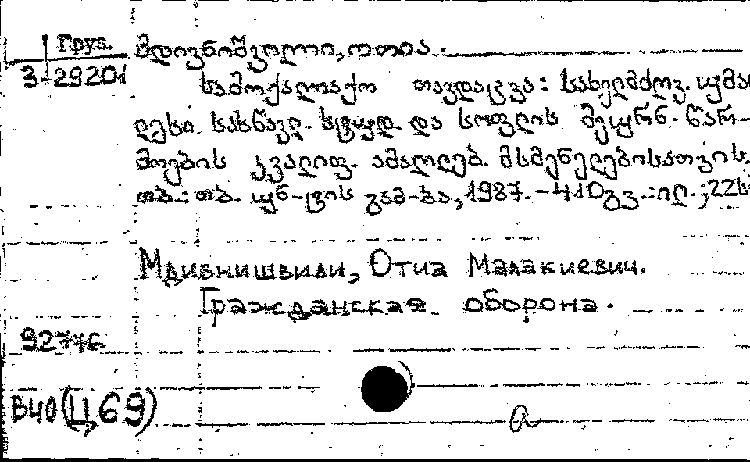 Груз.
3-29201
მდივნიშვილი, ოთია.
სამოქალაქო თავდაცვა: სახელმძღვ. უმაღლესი სასწავლ. სტუდ. და სოფლის მეურნ. წარ-
მოების კვალიფ. ამაღლებ. მსმენელებისათვის.
თბ.: თბ. უნ-ტის გამ-ბა, 1987. - 410გვ.: ილ.; 22ს
Мдивнишвили, Отиа Малакиевич.
Гражданская оборона.
92776
В40(Ц69)